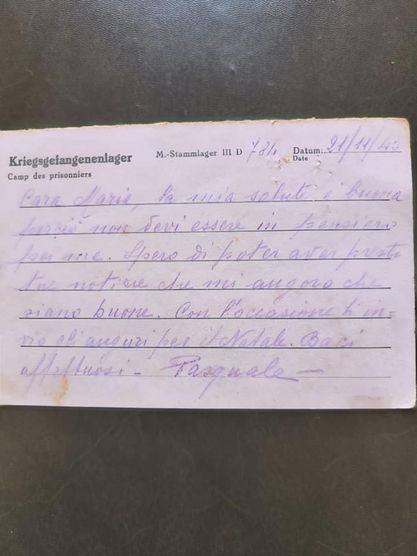 Kriegsgefangenenlager M.-Stammlager III D 784 Datum: 21/11/43
Camp des prisonniers Date
Cara Maria, la mia salute è buona
perciò non devi essere in pensiero
per me. Spero di poter aver presto
tue notizie che mi auguro che
siano buone. Con l'occasione ti in-
vio gli auguri per il Natale. Baci
affettuosi - Pasquale -